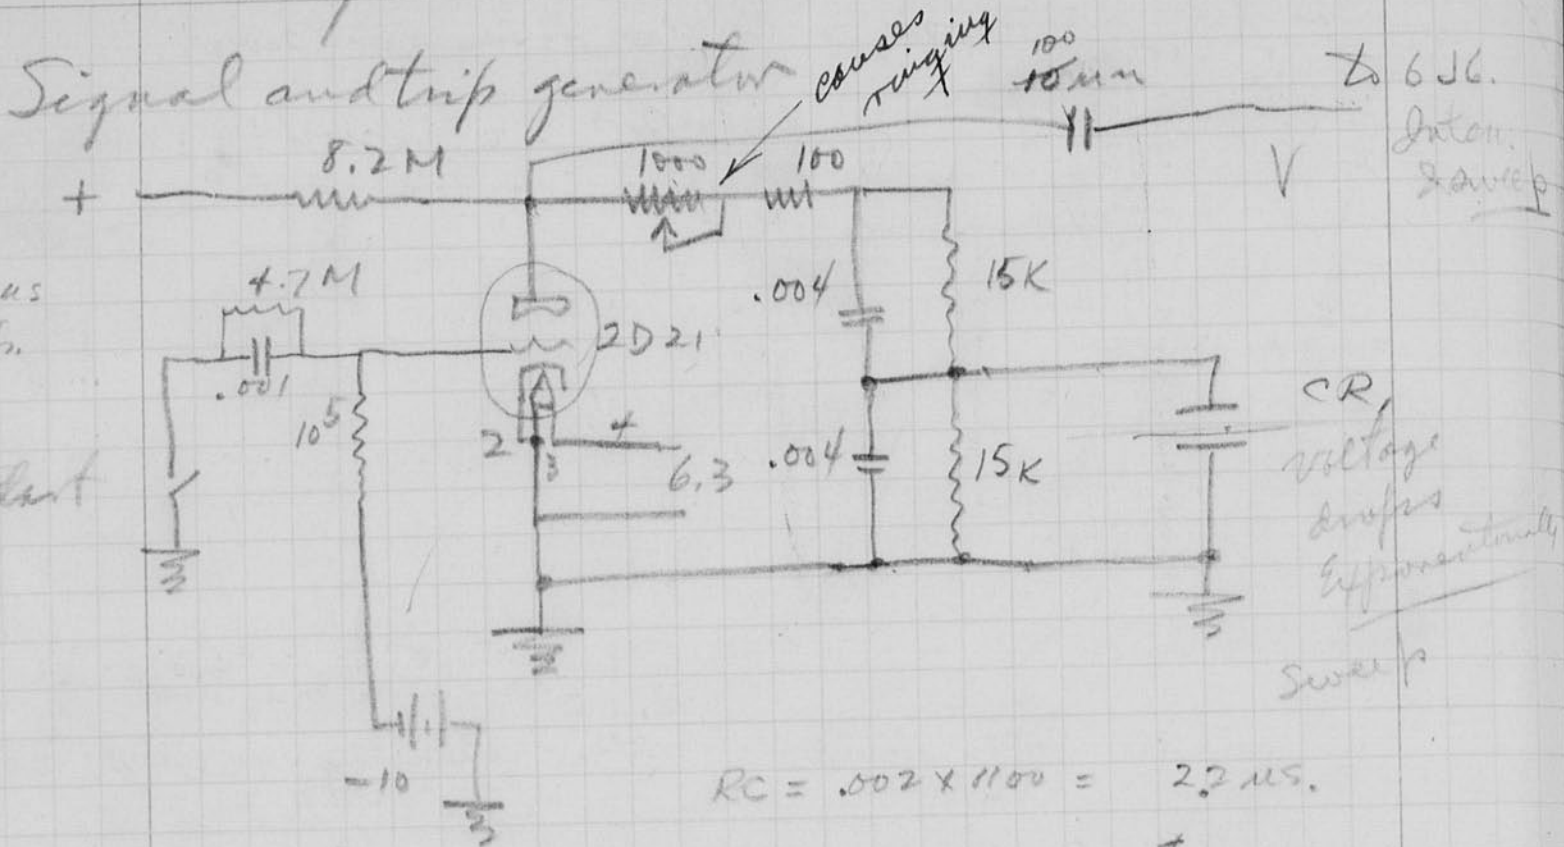 Signal and trip generator
causes
ringing
100
10 μμ
To 6J6.
8.2M
1000
100
V
Sweep
+
4.7M
.001
μs
2D21
.004
15K
10⁵
2
3
4
6.3
.004
15K
CR,
voltage
drops
Exponentially
Sweep
-10
RC = .002 x 1100 = 2.2 μs.